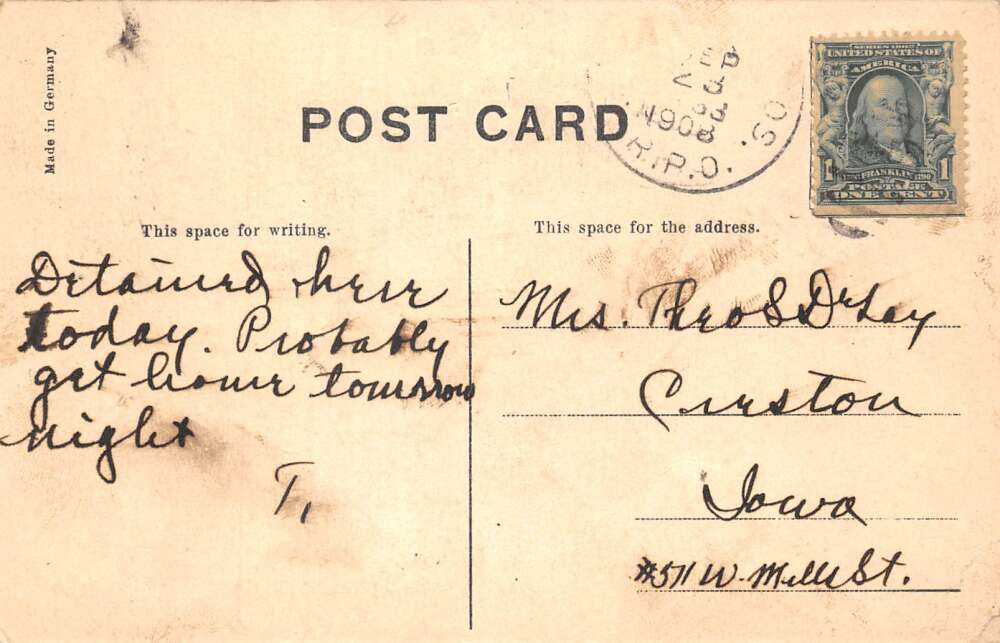 Made in Germany
POST CARD
1908
R.P.O. . SO
SERIES 1902
UNITED STATES OF
AMERICA
1 FRANKLIN 1
POSTAGE
ONE CENT
This space for writing.
Detained here
today. Probably
get home tomorrow
night
T,
This space for the address.
Mrs. Theo S DeLay
Creston
Iowa
#511 W. Mills St.